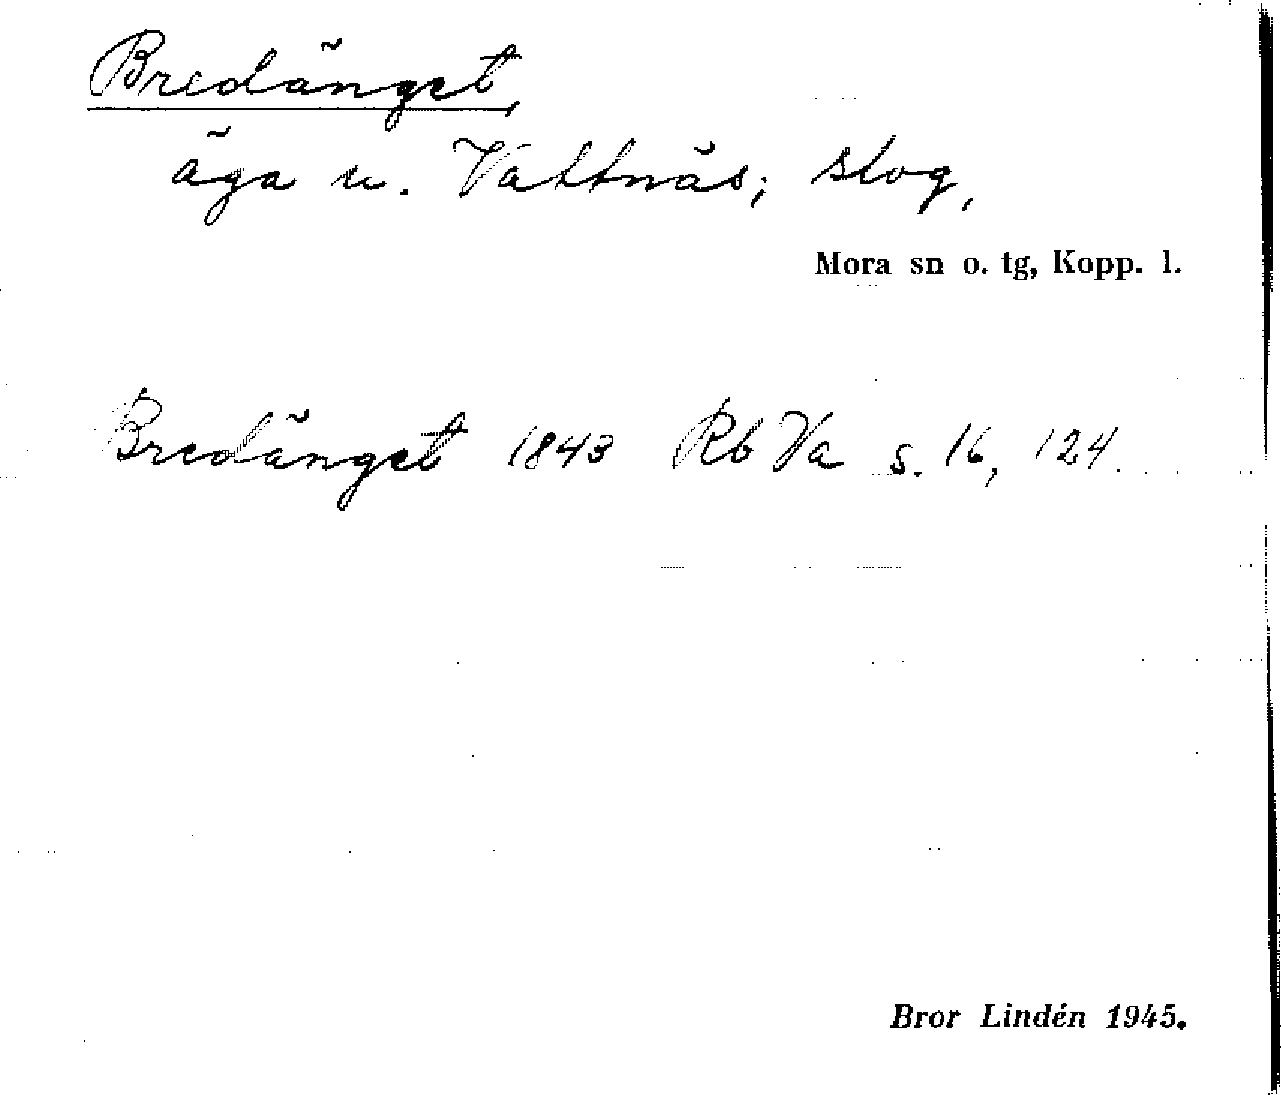 Bredänget,
äga u. Vattnäs; slog,
Mora sn o. tg, Kopp. l.
Bredänget 1843 Rb Va s. 16, 124.
Bror Lindén 1945.